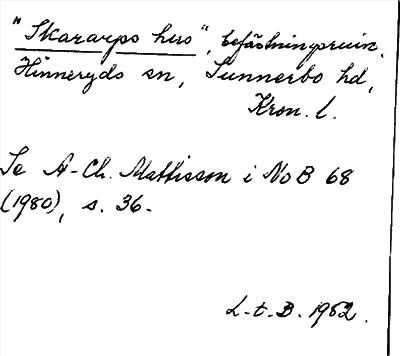 "Skararps hus", befästningsruin.
Hinneryds sn, Sunnerbo hd,
Kron. l.
Se A-Ch. Mattisson i NoB 68
(1980), s. 36.
L-t-B. 1982.